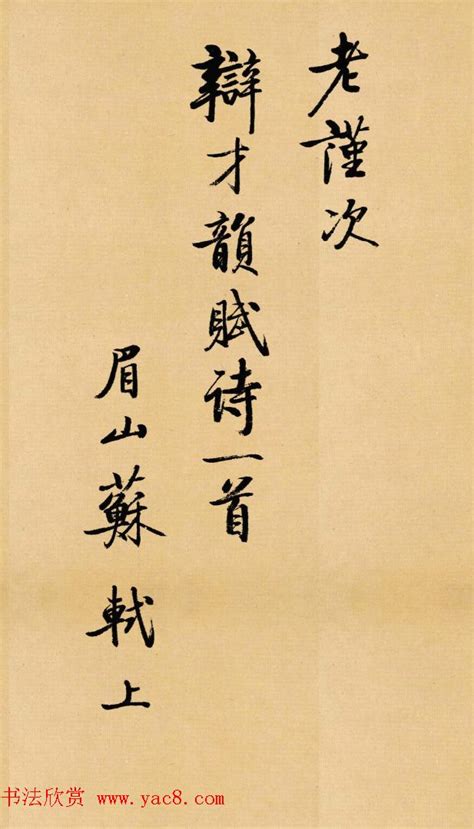 老謹次
辯才韻賦诗一首
眉山蘇軾上
书法欣赏 www.yac8.com